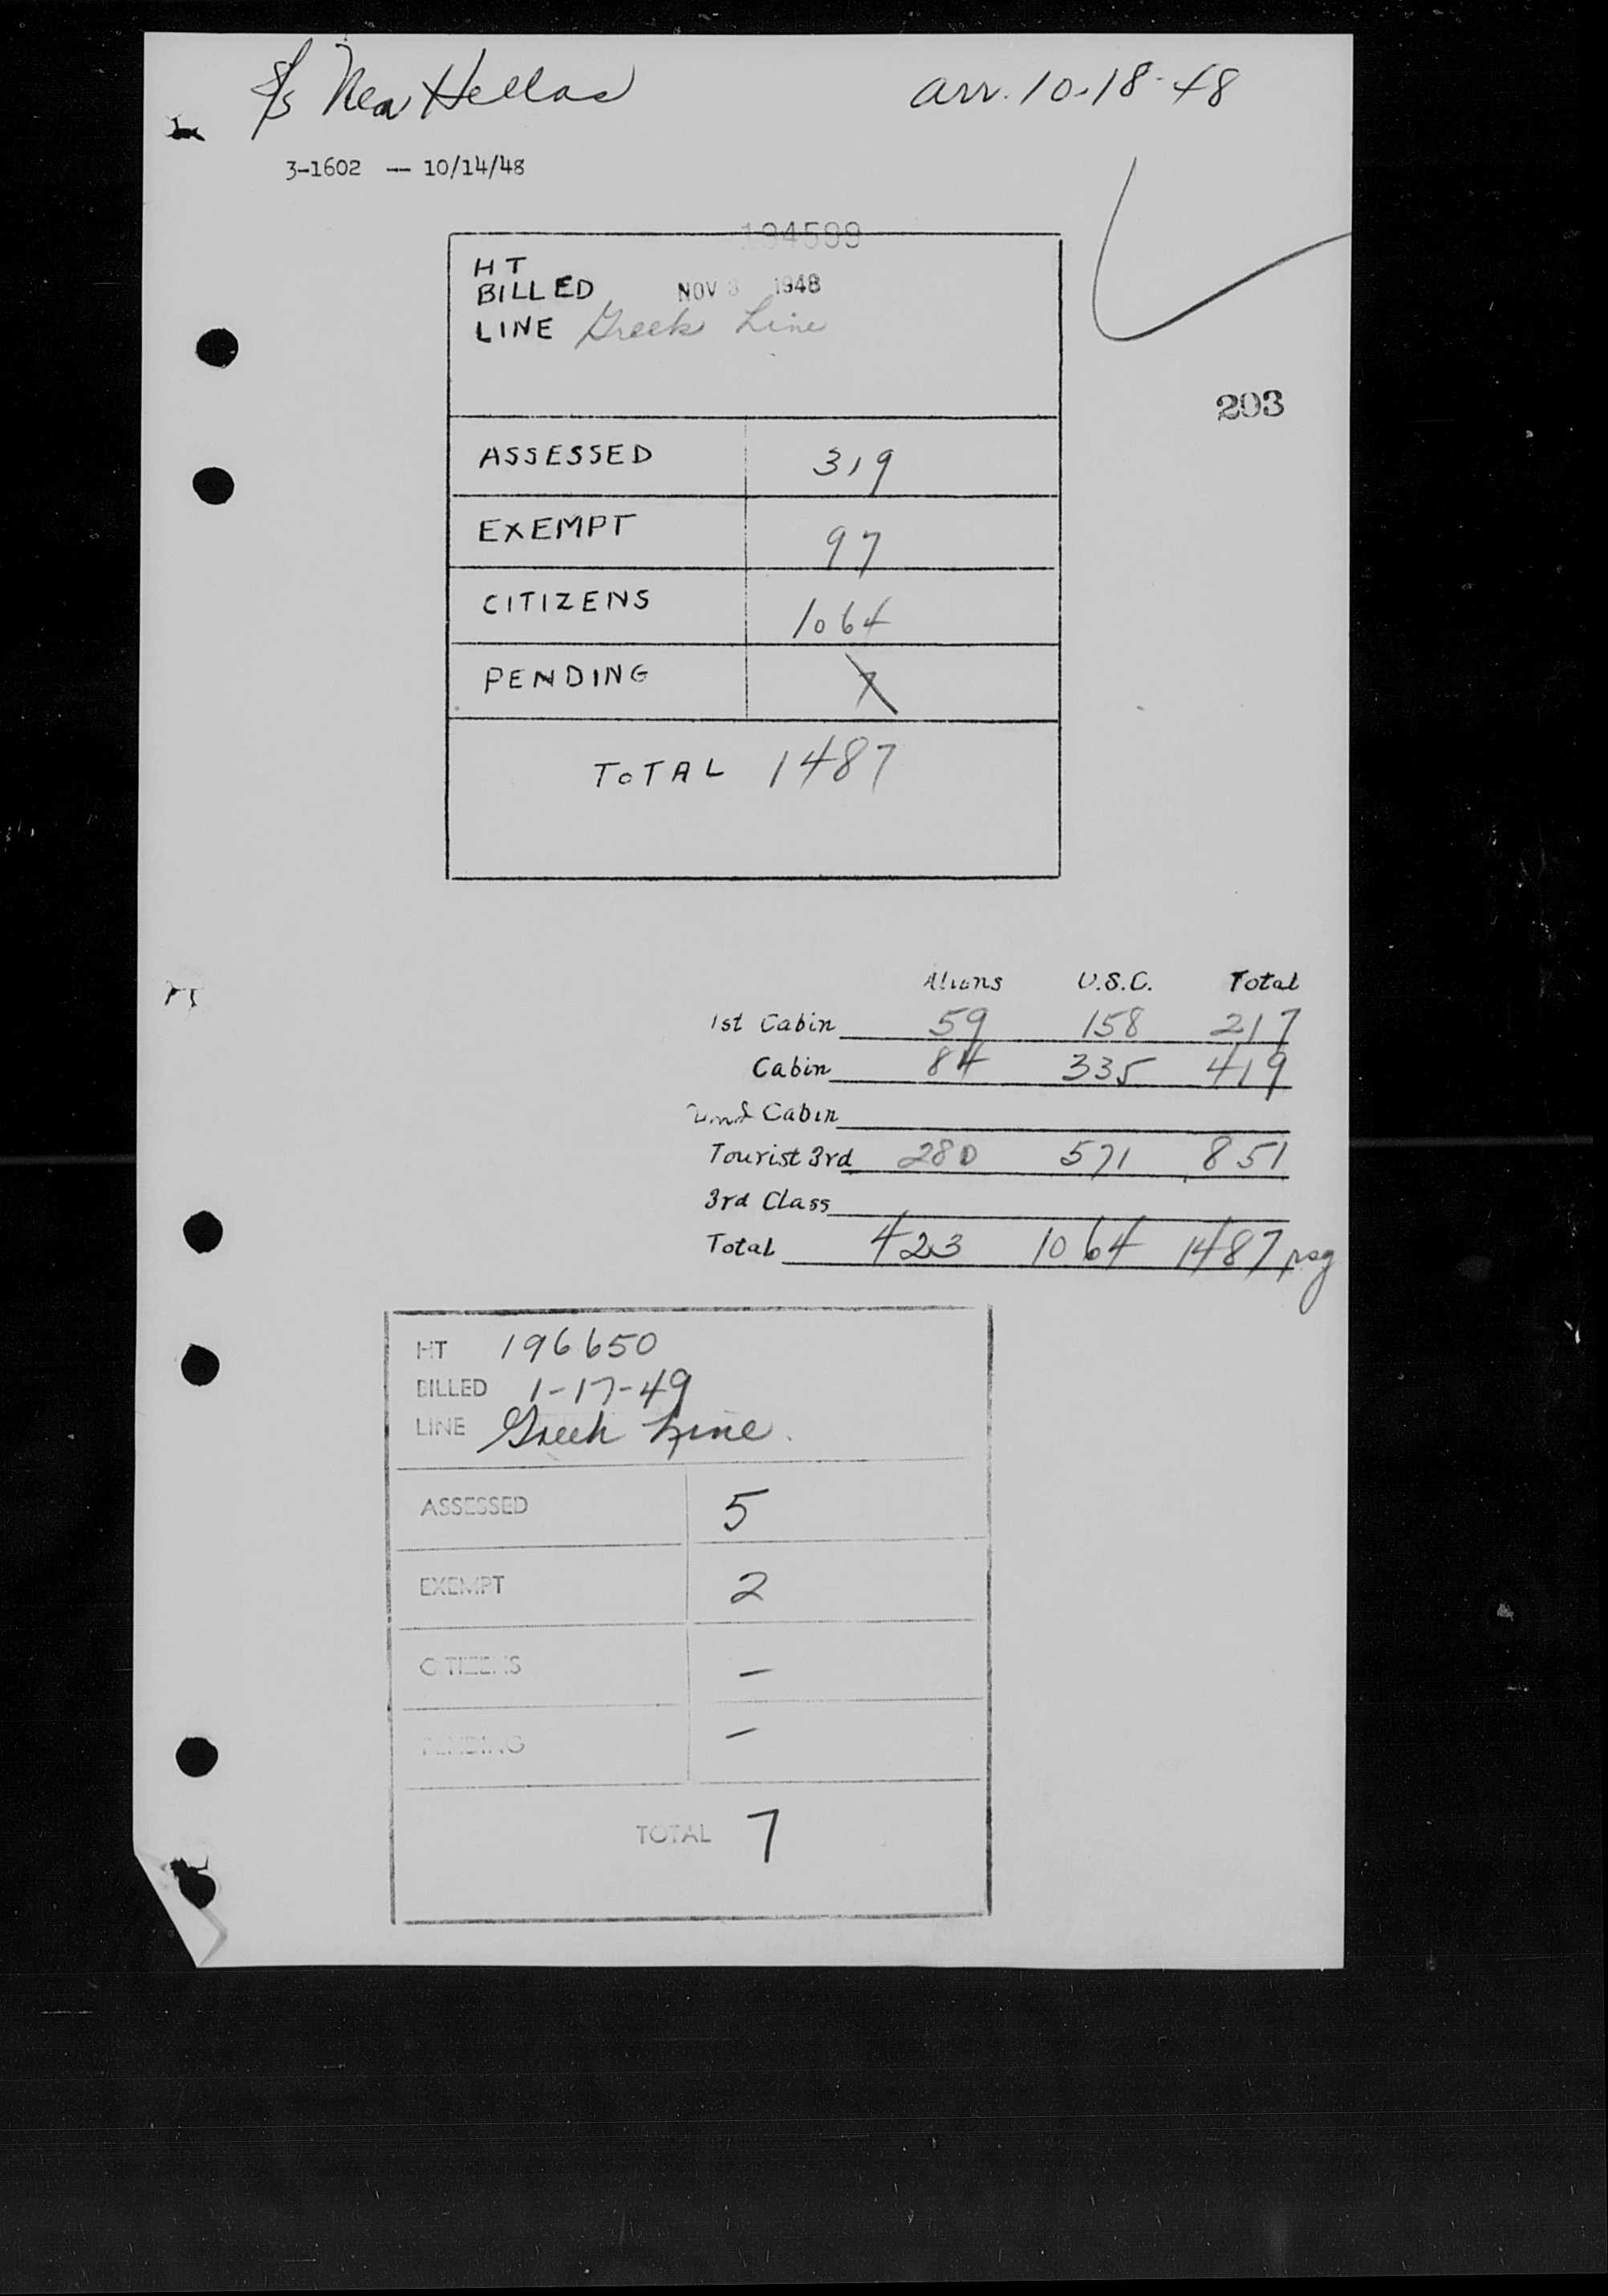 S/S Nea Hellas arr. 10-18-48
3-1602 -- 10/14/48
194599
HT
BILLED NOV 1948
LINE Greek Line
203
ASSESSED 319
EXEMPT 97
CITIZENS 1064
PENDING 7
TOTAL 1487
Aliens U.S.C. Total
1st Cabin 59 158 217
Cabin 84 335 419
2nd Cabin
Tourist 3rd 280 571 851
3rd Class
Total 423 1064 1487 psg
HT 196650
BILLED 1-17-49
LINE Greek Line.
ASSESSED 5
EXEMPT 2
CITIZENS -
PENDING -
TOTAL 7